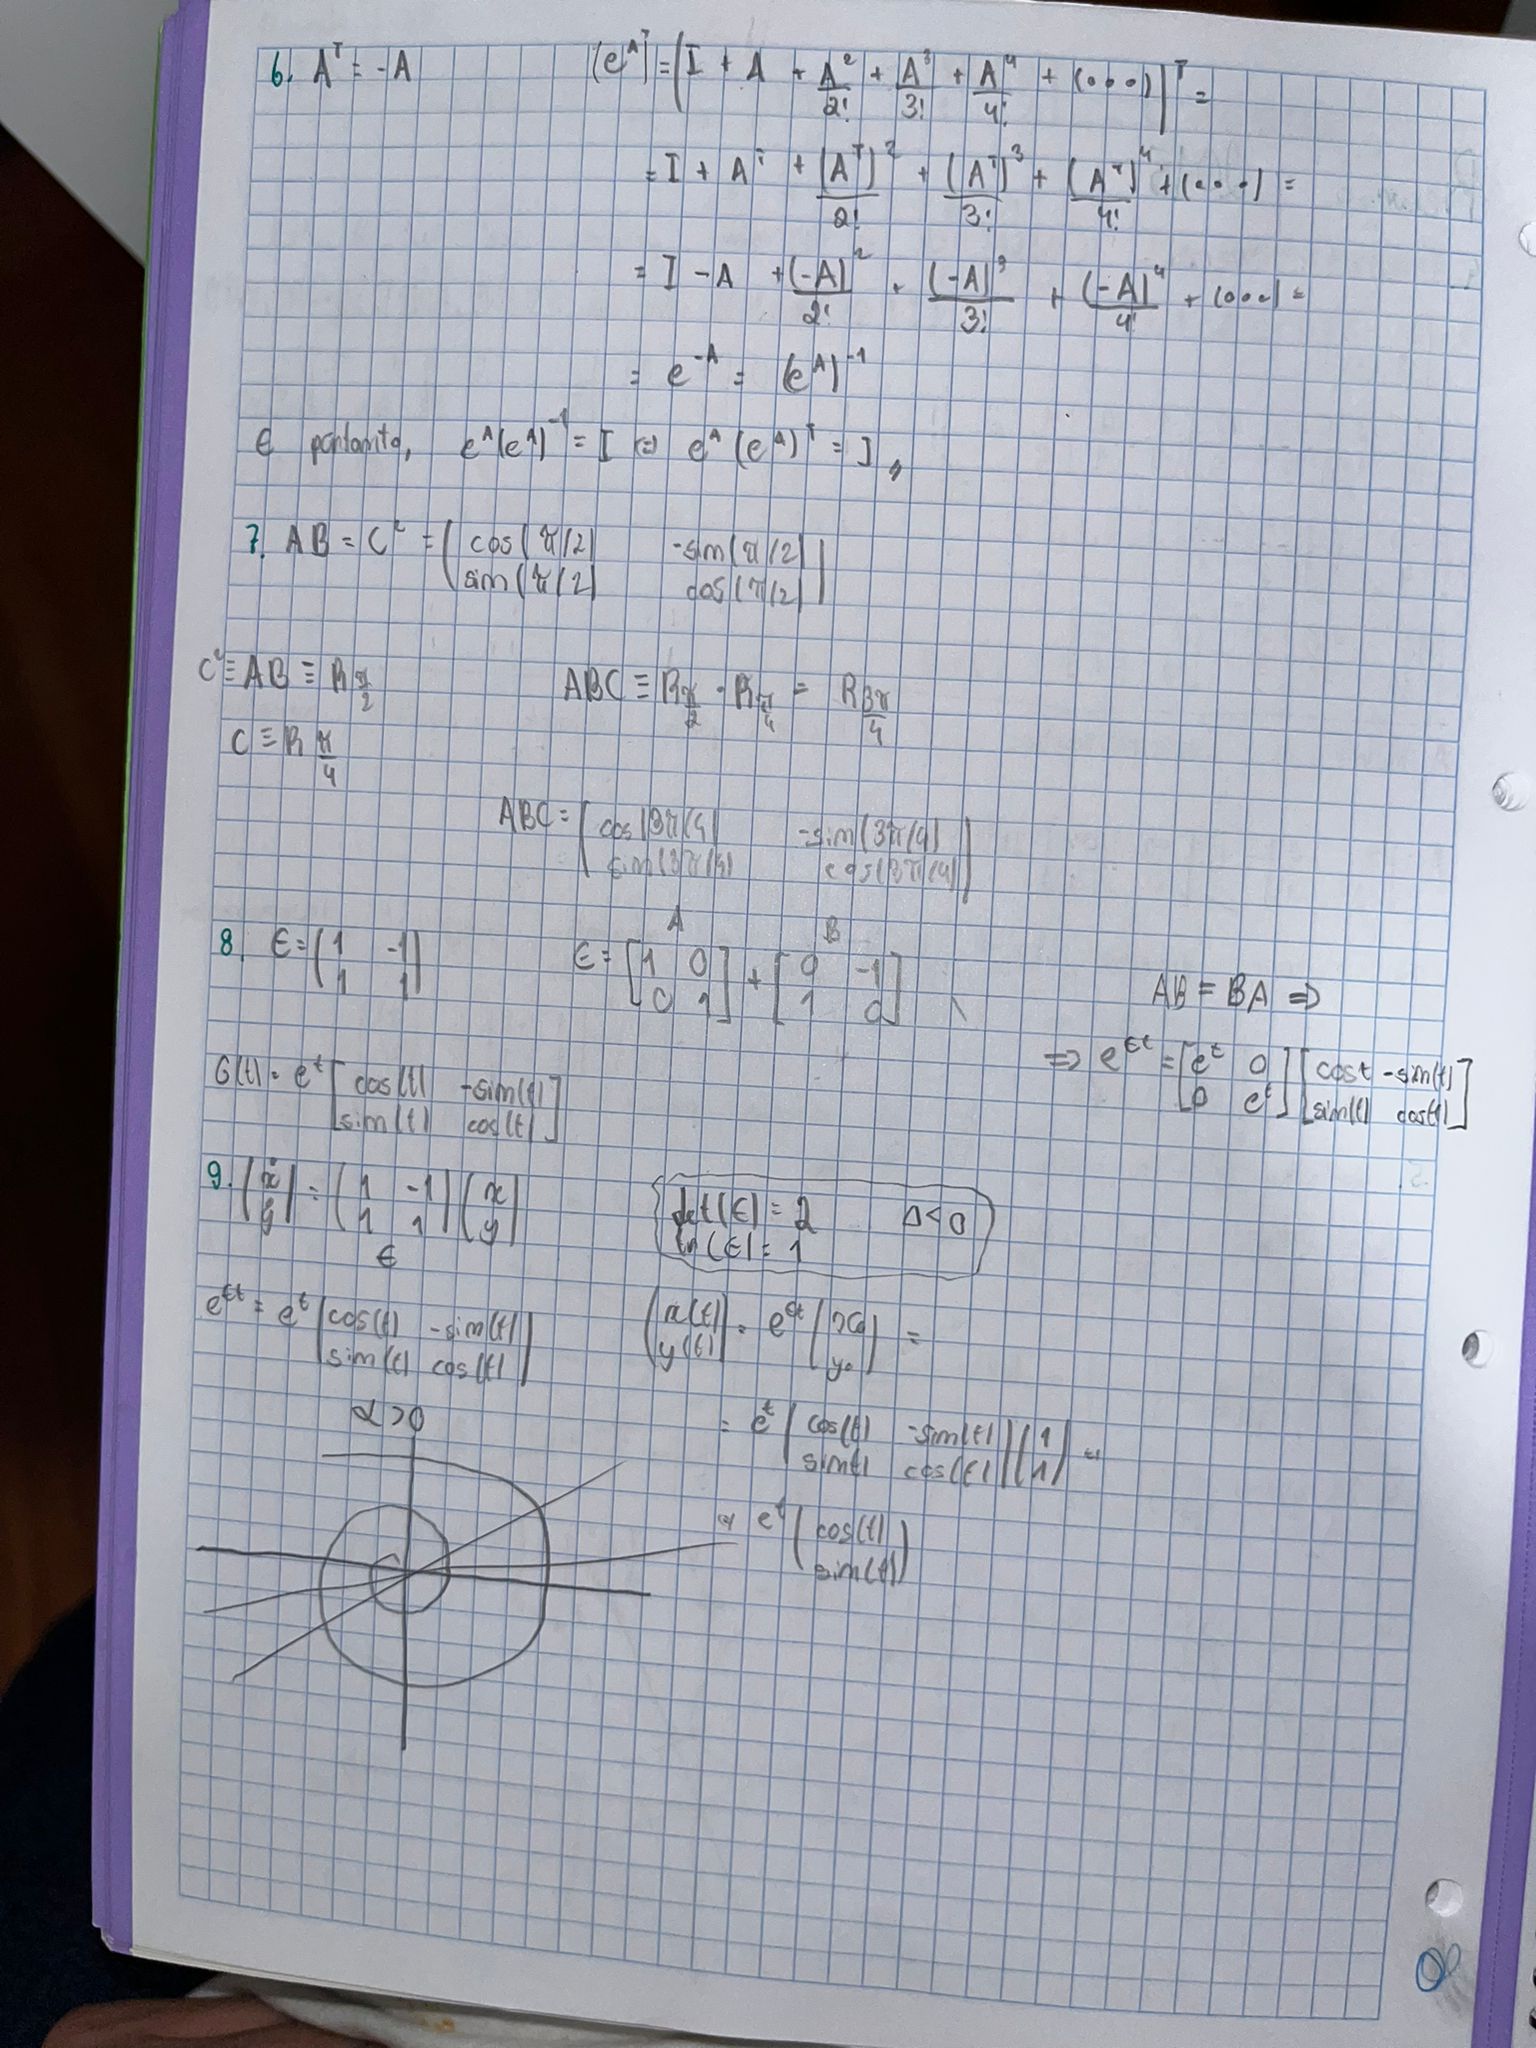 6. A^T = -A (e^A)^T = (I + A + A^2/2! + A^3/3! + A^4/4! + (...))^T =
= I + A^T + (A^T)^2/2! + (A^T)^3/3! + (A^T)^4/4! + (...) =
= I - A + (-A)^2/2! + (-A)^3/3! + (-A)^4/4! + (...) =
= e^-A = (e^A)^-1
E portanto, e^A(e^A)^-1 = I (=) e^A (e^A)^T = I,,
7. AB = C^2 = ( cos(π/2) -sin(π/2)
sin(π/2) cos(π/2) )
C^2 ≡ AB ≡ R π/2 ABC ≡ R π/2 · R π/4 = R 3π/4
C ≡ R π/4
ABC = ( cos(3π/4) -sin(3π/4)
sin(3π/4) cos(3π/4) )
A B
8. E = ( 1 -1 E = [ 1 0 + [ 0 -1
1 1 ) 0 1 ] 1 0 ]
AB = BA ⇒
⇒ e^Et = [ e^t 0 [ cost -sin(t)
0 e^t ] sin(t) cos(t) ]
G(t) = e^t [ cos(t) -sin(t)
sin(t) cos(t) ]
9. ( ẋ = ( 1 -1 ( x
ẏ ) 1 1 ) y )
E
det(E) = 2 Δ<0
tr(E) = 1
e^Et = e^t ( cos(t) -sin(t)
sin(t) cos(t) )
( x(t) = e^Et ( x0 =
y(t) ) y0 )
α>0
= e^t ( cos(t) -sin(t) ( 1 =
sin(t) cos(t) ) 1 )
= e^t ( cos(t)
sin(t) )